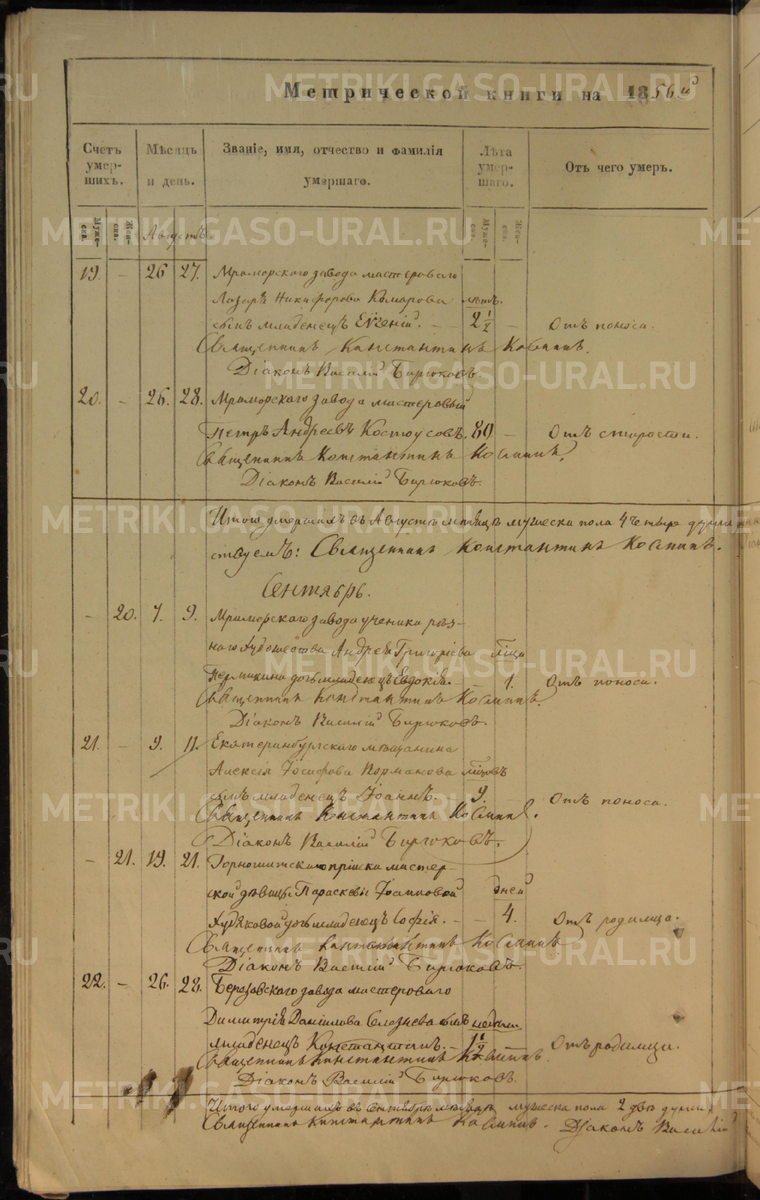 METRIKI.GASO-URAL.RU
Метрической книги на 1856й
Счетъ умер-шихъ. Мѣсяцъ и день. Званіе, имя, отчество и фамилія умершаго. Лѣта умер-шаго. Отъ чего умеръ.
Муже-ска. Жен-ска. Августъ. Муже-ска. Жен-ска.
19. - 26 27. Мраморскаго завода мастероваго
Лазаря Никифорова Комарова лѣтъ.
сынъ младенецъ Евгеній. - 2 1/2 - Отъ поноса.
Священникъ Константинъ
Діаконъ Василій Бирюковъ.
20. - 26. 28. Мраморскаго завода мастеровый
Петръ Андреевъ Костоусовъ. 80 - Отъ старости.
Священникъ Константинъ
Діаконъ Василій Бирюковъ.
Итого умершихъ въ Августѣ мѣсяцѣ мужеска пола 4 четыре души
Священникъ Константинъ
Сентябрь.
- 20. 7. 9. Мраморскаго завода ученика рѣз-
наго художества Андрея Григорьева
Пермикина дочь младенецъ Евдокія. - - 1. Отъ поноса.
Священникъ Константинъ
Діаконъ Василій Бирюковъ.
21. - 9. 11. Екатеринбургскаго мѣщанина
Алексія Іосифова
сынъ младенецъ Іоаннъ. 9. - Отъ поноса.
Священникъ Константинъ
Діаконъ Василій Бирюковъ.
- 21. 19. 21. Горнощитскаго пріиска мастер-
ской дѣвицы Параскевіи Іосифовой дней
Худяковой дочь младенецъ Софія. - - 4. Отъ родимца.
Священникъ Константинъ
Діаконъ Василій Бирюковъ.
22. - 26. 28. Березовскаго завода мастероваго
Димитрія Данилова Селезнева сынъ недѣли
младенецъ Константинъ. - 1 1/2 - Отъ родимца.
Священникъ Константинъ
Діаконъ Василій Бирюковъ.
Итого умершихъ въ Сентябрѣ мѣсяцѣ мужеска пола 2 двѣ души
Священникъ Константинъ Діаконъ Василій